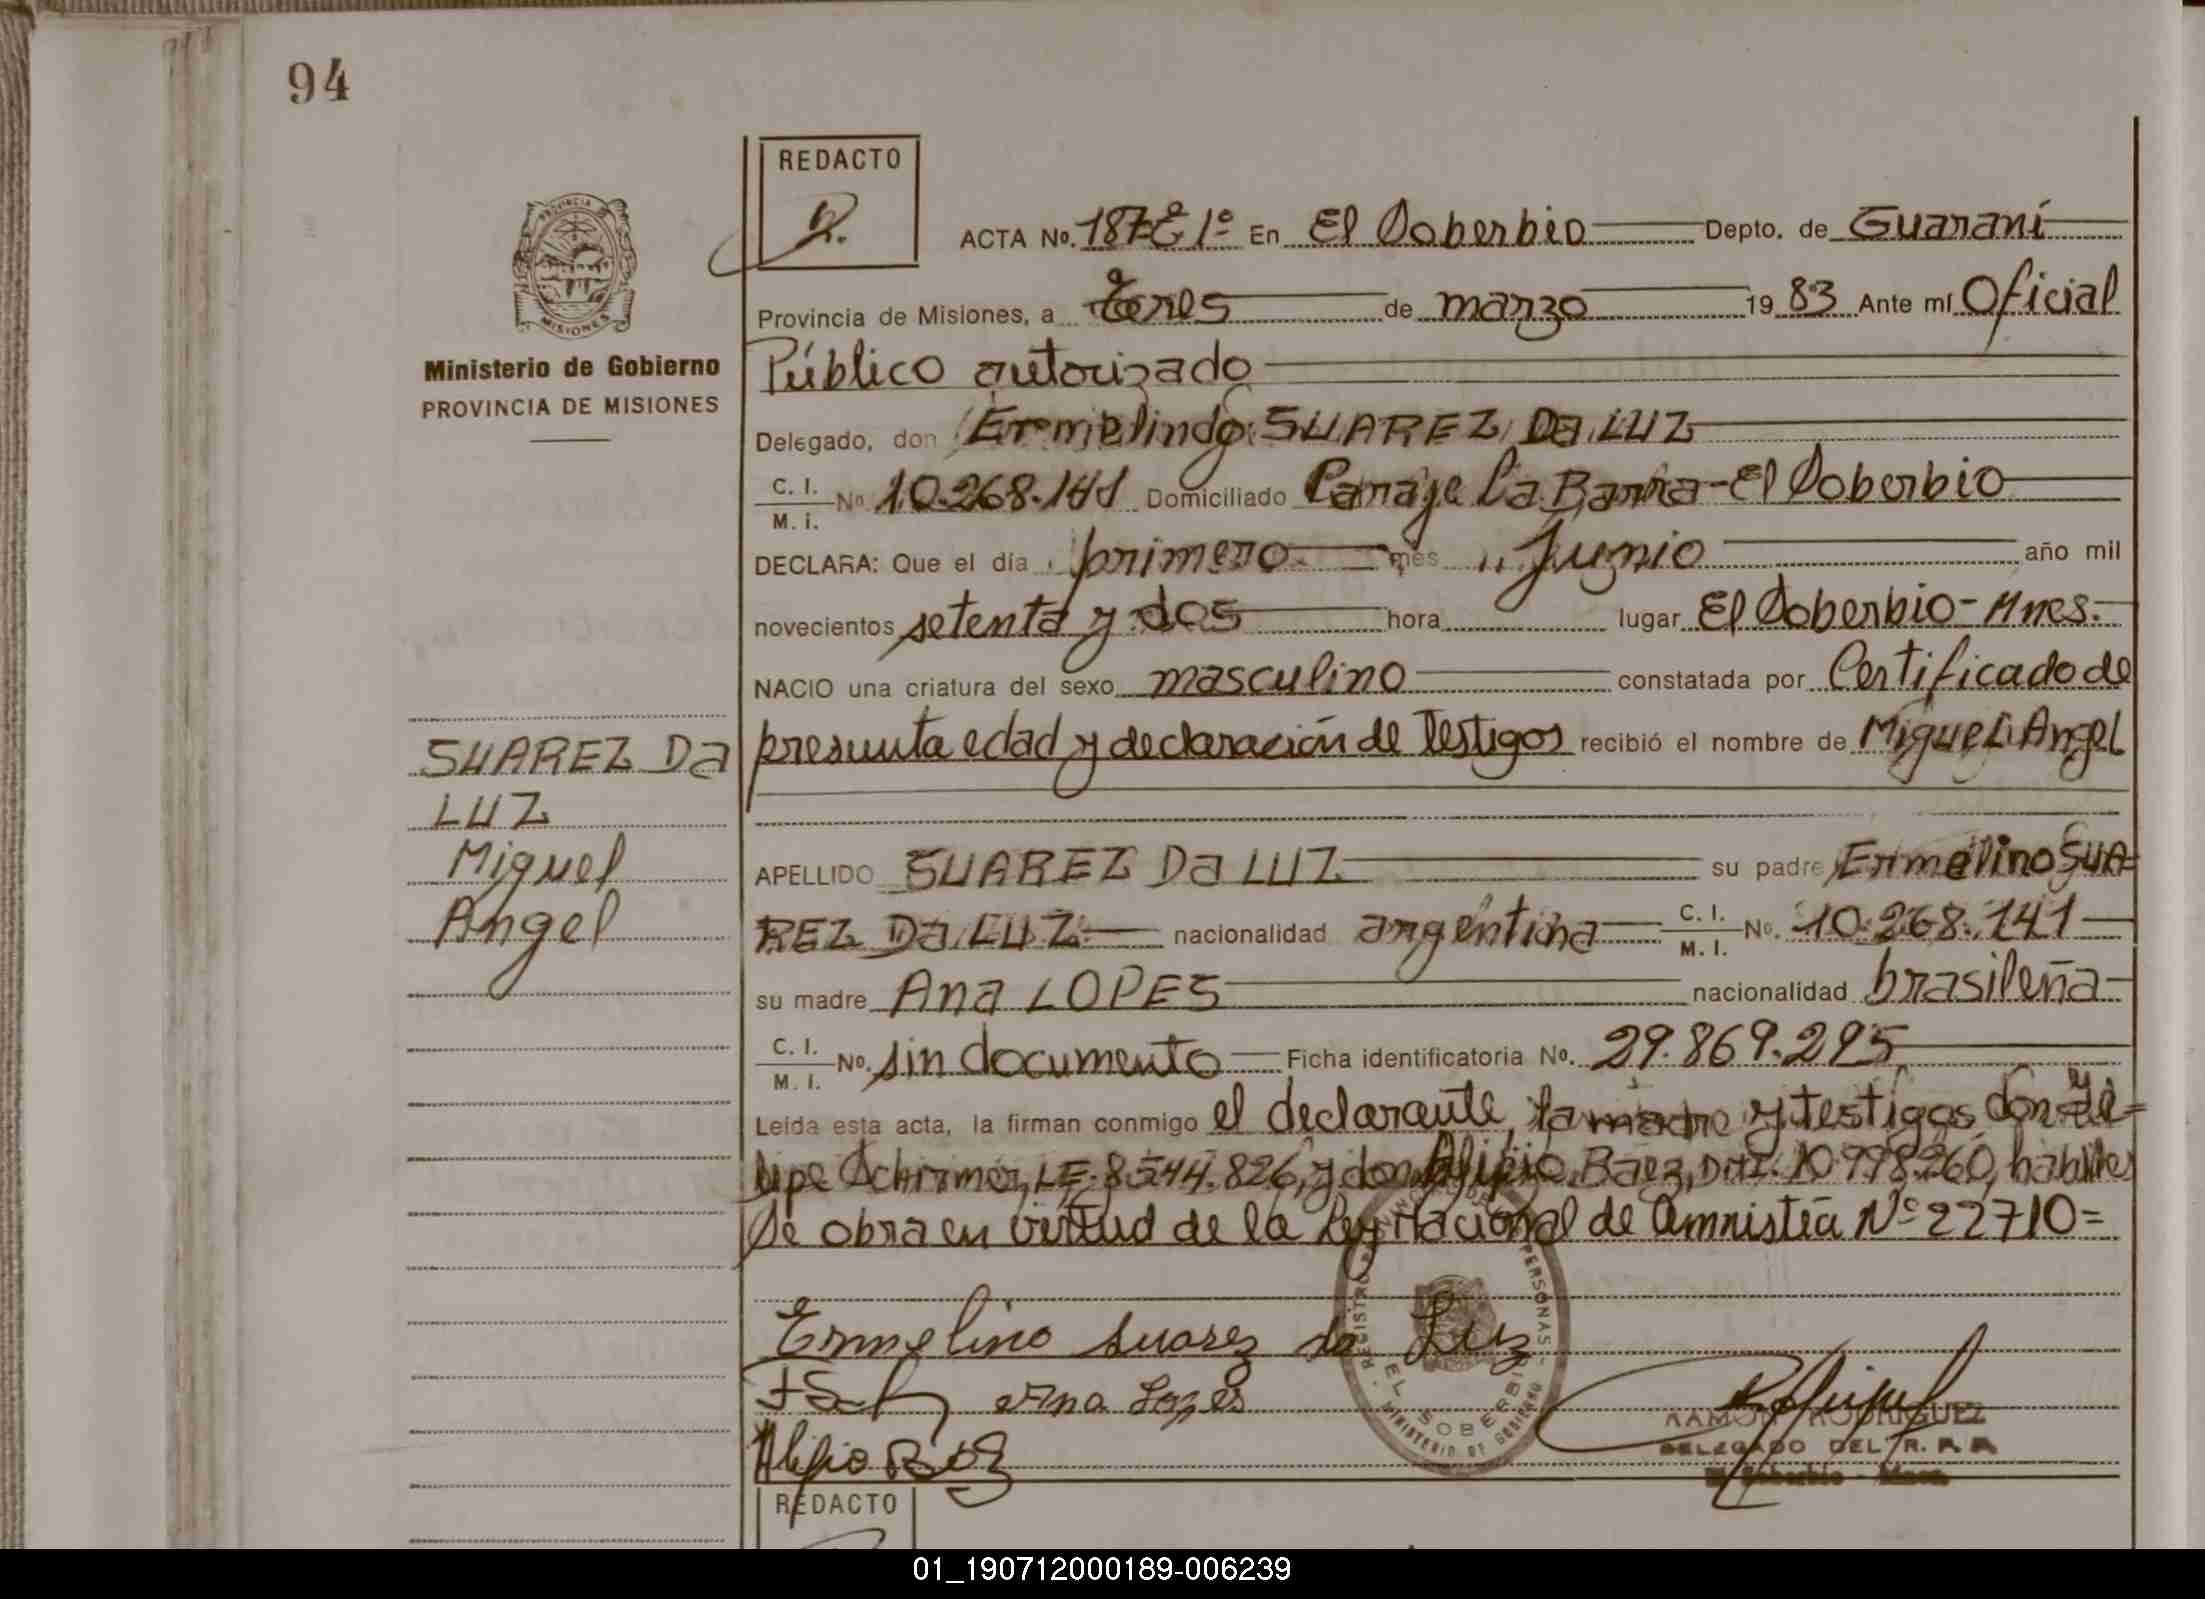 94
REDACTO
ACTA No. 187-E 1° En El Soberbio Depto. de Guaraní
Provincia de Misiones, a tres de marzo 19 83 Ante mí Oficial
Público autorizado
PROVINCIA
MISIONES
Ministerio de Gobierno
PROVINCIA DE MISIONES
Delegado, don SUAREZ Da LUZ
C. I.
M. i. No 10.268.141 Domiciliado Paraje La Barra - El Soberbio
DECLARA: Que el día primero mes Junio año mil
novecientos setenta y dos hora lugar El Soberbio - Mnes.
NACIO una criatura del sexo masculino constatada por Certificado de
presunta edad y declaración de Testigos recibió el nombre de Miguel Angel
SUAREZ Da
LUZ
Miguel
Angel
APELLIDO SUAREZ Da LUZ su padre Ermelino SUA=
REZ Da LUZ nacionalidad argentina C. I. M. I. No. 10.268.141
su madre Ana LOPES nacionalidad brasileña
C. I. M. I. No. sin documento Ficha identificatoria No. 29.869.295
Leída esta acta, la firman conmigo el declarante, la madre y testigos don
LE. 8.544.826, y don Alipio Baez, 10.998.260, habiles
Se obra en virtud de la Ley Nacional de Amnistía N° 22710=
Ermelino Suarez da Luz
Ana Lopes
Alipio
REGISTRO PERSONAS
EL SOBERBIO
MINISTERIO DE GOBIERNO
RAMON RODRIGUEZ
DELEGADO DEL R. P. P.
El Soberbio - Mnes.
REDACTO
01_190712000189-006239